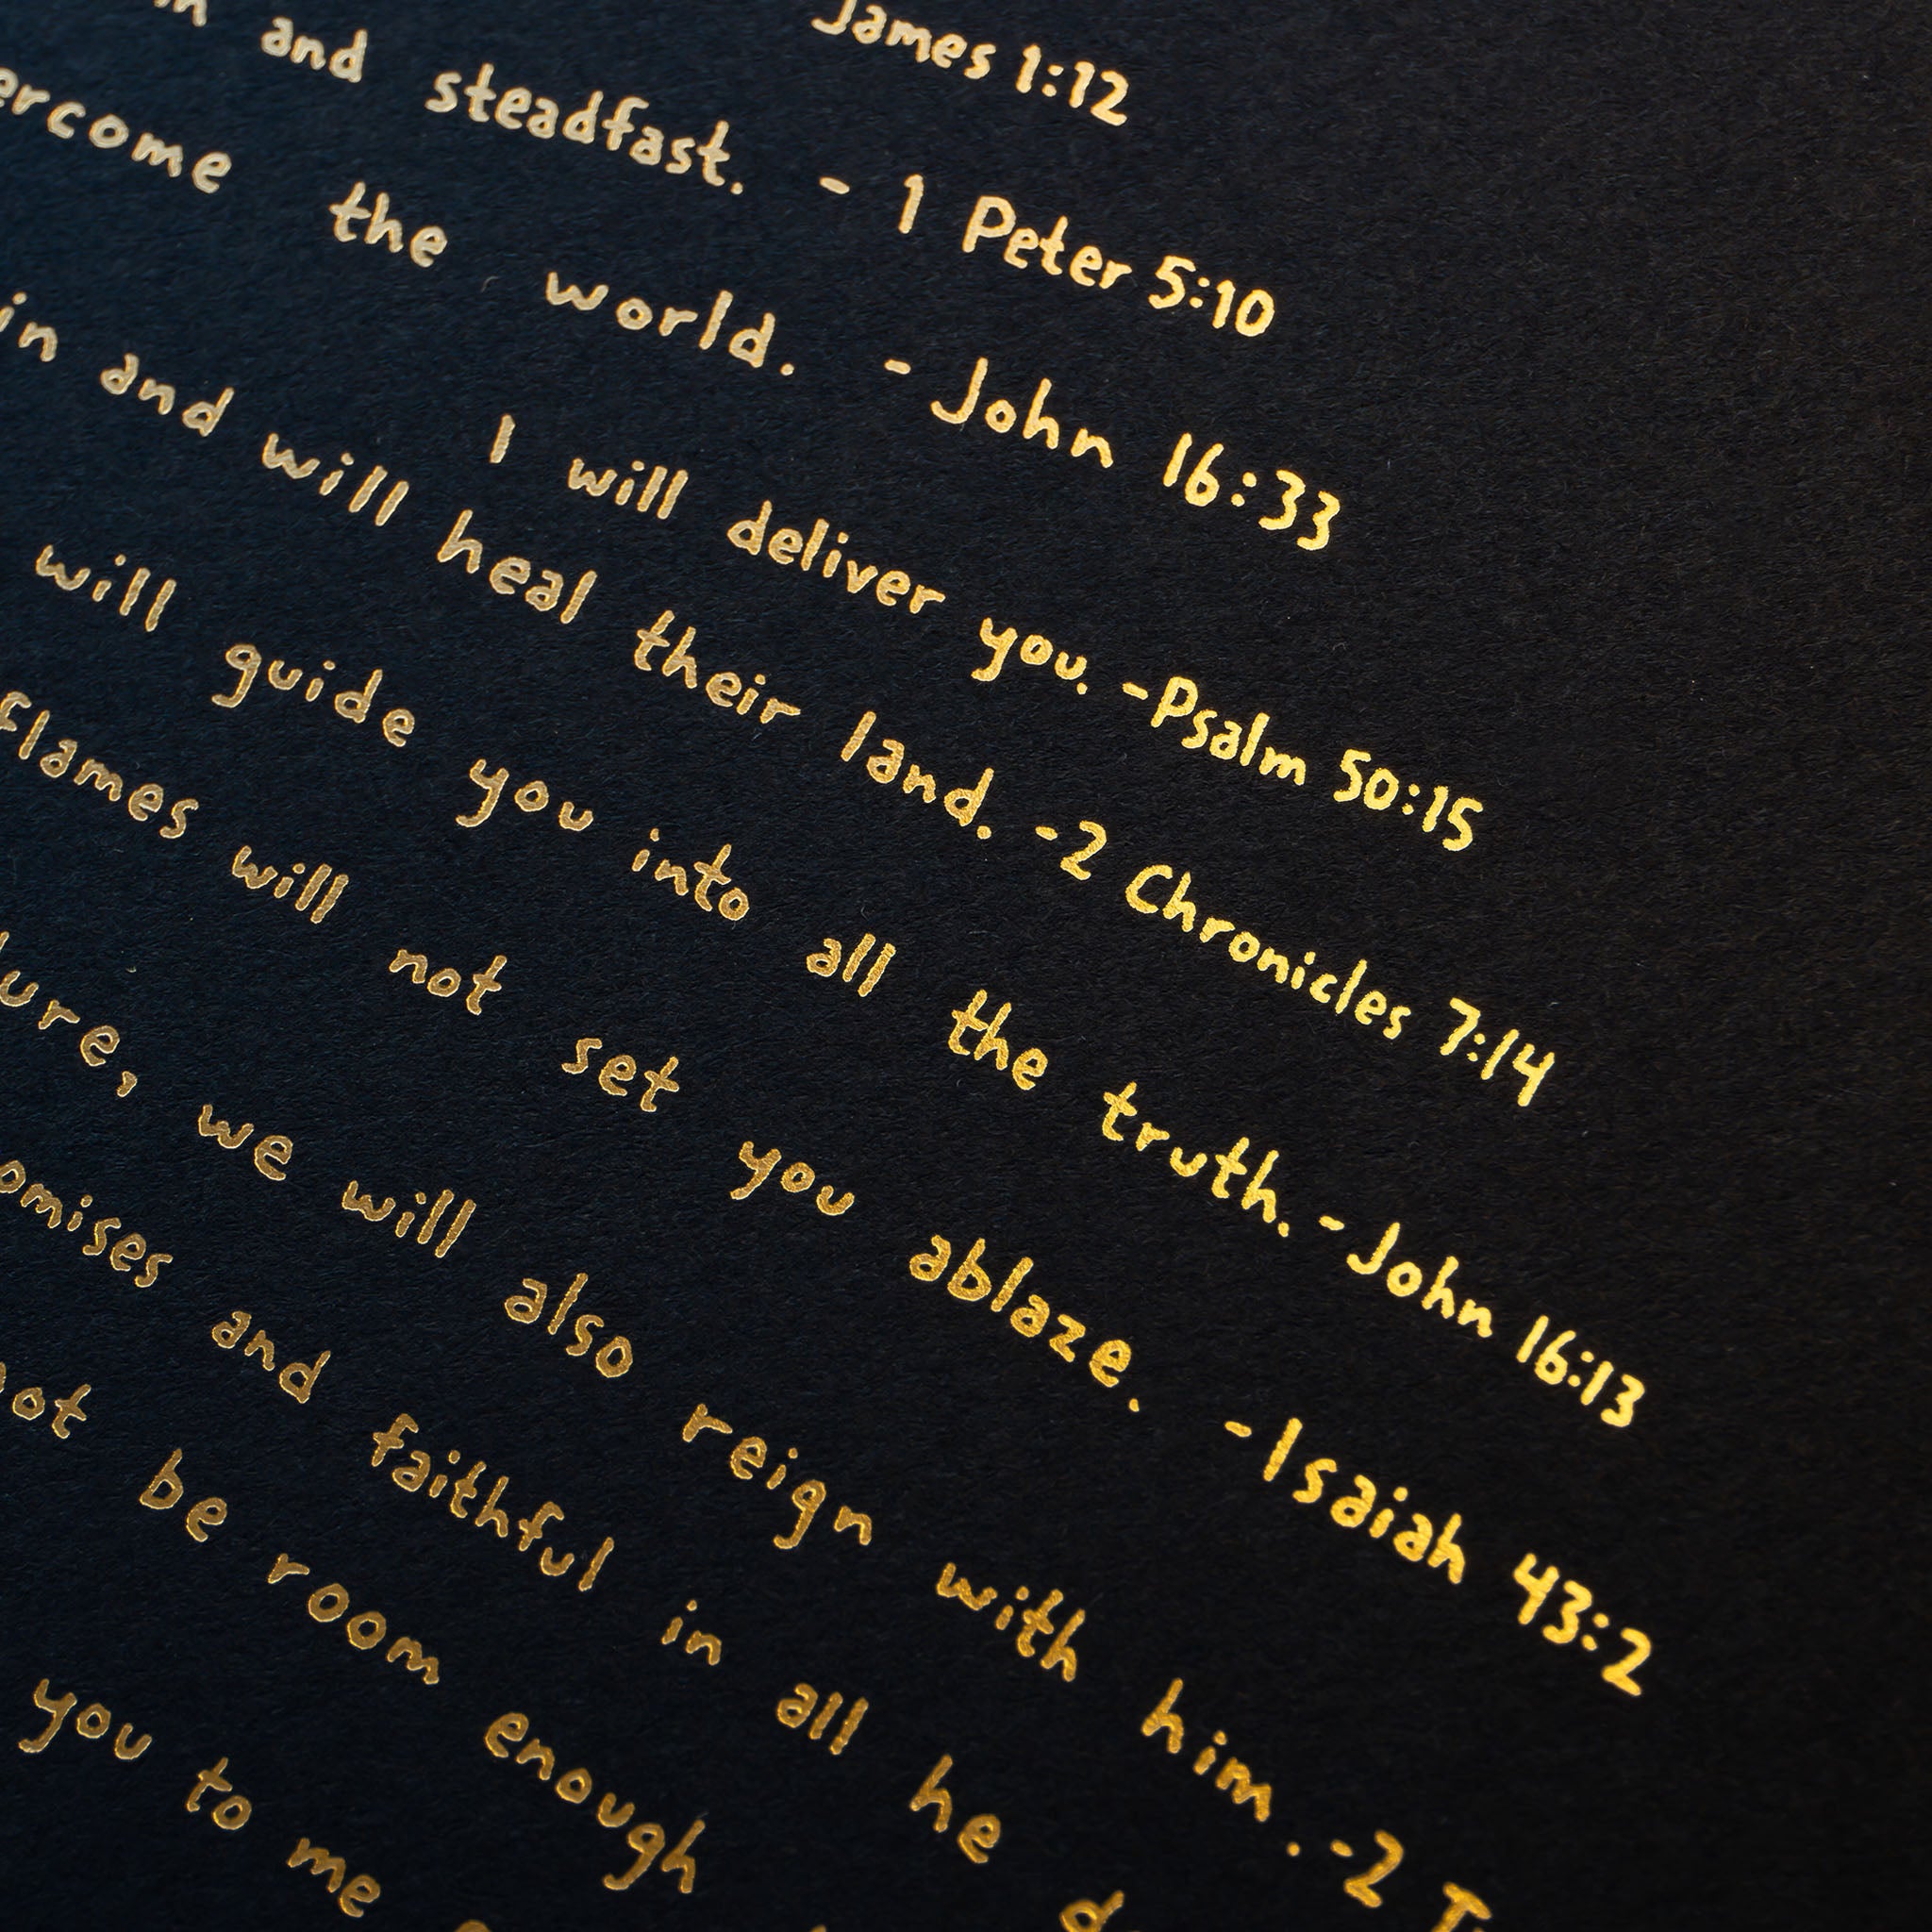 James 1:12
and steadfast. - 1 Peter 5:10
ercome the world. - John 16:33
I will deliver you. -Psalm 50:15
in and will heal their land. -2 Chronicles 7:14
will guide you into all the truth. -John 16:13
flames will not set you ablaze. -Isaiah 43:2
ure, we will also reign with him. -2 T
omises and faithful in all he d
not be room enough
you to me